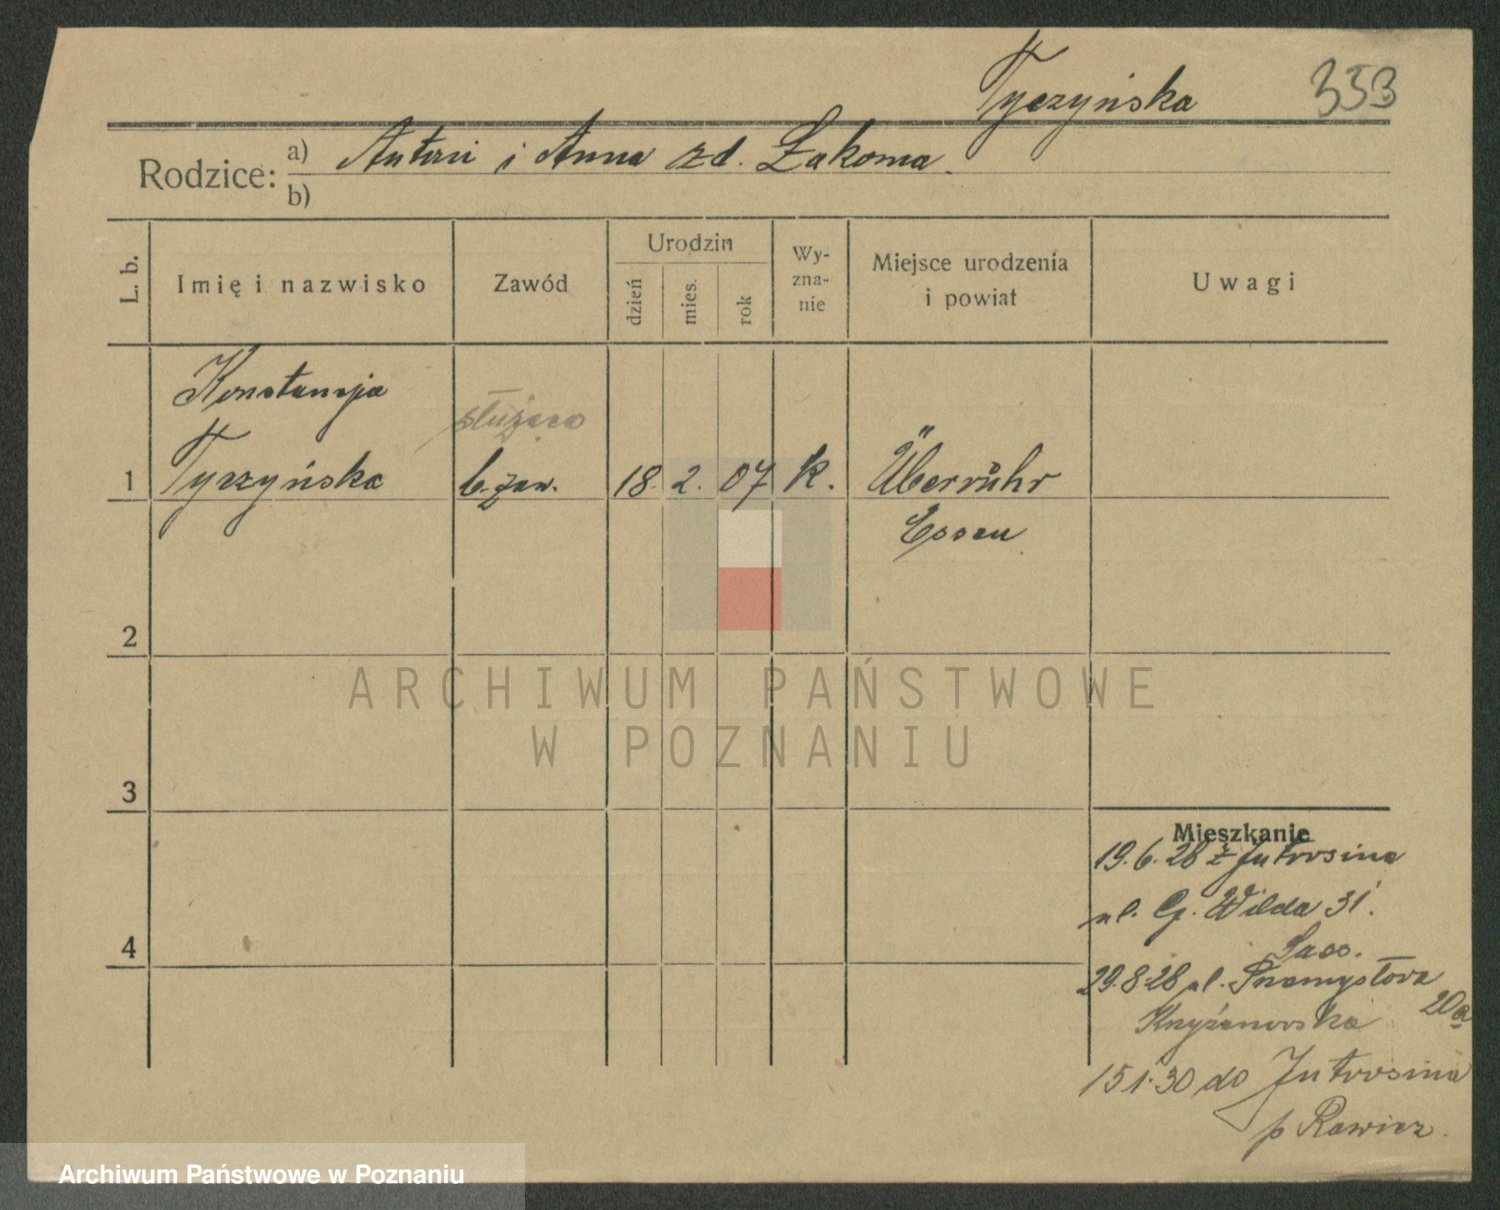 Tyczyńska 353
Rodzice: a) Antoni i Anna zd. Łakoma.
b)
L. b. Imię i nazwisko Zawód Urodzin dzień mies. rok Wy-zna-nie Miejsce urodzenia i powiat Uwagi
Konstancja służąca
1 Tyczyńska b. zaw. 18. 2. 07 k. Überruhr
Essen
2
ARCHIWUM PAŃSTWOWE
W POZNANIU
3
Mieszkanie
19.6.28 z Jutrosina
ul. G. Wilda 31.
4
29.8.28 ul. Przemysłowa
20a
Krzyżanowska
15.1.30 do Jutrosina
p Rawicz.
Archiwum Państwowe w Poznaniu